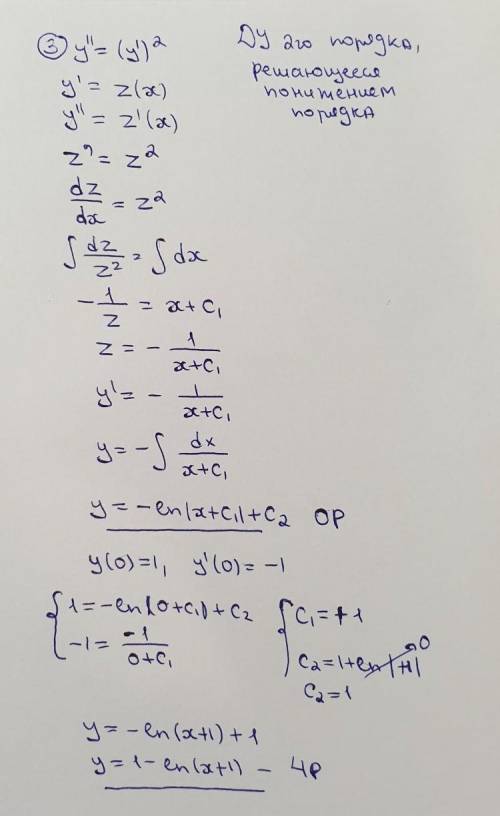 ③ y'' = (y')²
ДУ 2го порядка,
решающееся
понижением
порядка
y' = z(x)
y'' = z'(x)
z' = z²
dz/dx = z²
∫ dz/z² = ∫ dx
-1/z = x+C₁
z = - 1/(x+C₁)
y' = - 1/(x+C₁)
y = -∫ dx/(x+C₁)
y = -ln|x+C₁|+C₂ ОР
y(0)=1, y'(0)=-1
{ 1=-ln|0+C₁|+C₂
-1= -1/(0+C₁)
{ C₁=+1
C₂=1+ln|+1| 0
C₂=1
y=-ln(x+1)+1
y=1-ln(x+1) - ЧР